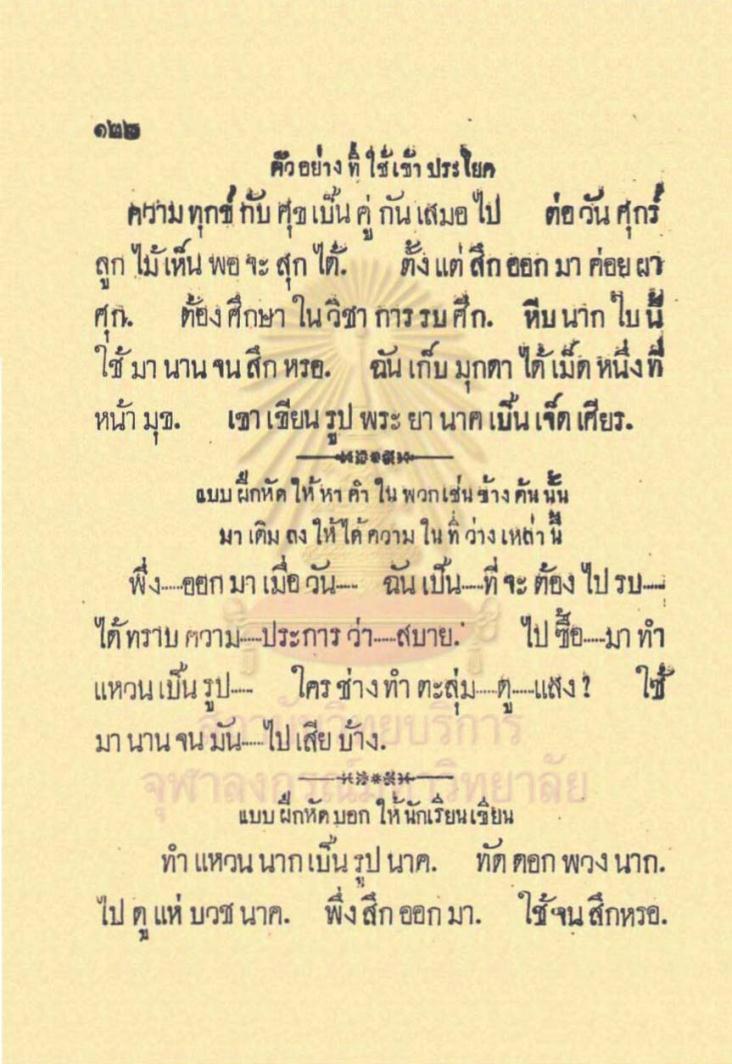 ๑๒๒
ตัวอย่าง ที่ ใช้ เข้า ประโยค
ความ ทุกข์ กับ ศุข เป็น คู่ กัน เสมอ ไป ต่อ วัน ศุกร์
ลูก ไม้ เห็น พอ จะ สุก ได้. ตั้ง แต่ สึก ออก มา ค่อย ผา
ศุก. ต้อง ศึกษา ใน วิชา การ รบ ศึก. หีบ นาก ใบ นี้
ใช้ มา นาน จน สึก หรอ. ฉัน เก็บ มุกดา ได้ เม็ด หนึ่ง ที่
หน้า มุข. เขา เขียน รูป พระ ยา นาค เป็น เจ็ด เศียร.
แบบ ฝึกหัด ให้ หา คำ ใน พวก เช่น ข้าง ต้น นั้น
มา เติม ลง ให้ ได้ ความ ใน ที่ ว่าง เหล่า นี้
พึ่ง....ออก มา เมื่อ วัน.... ฉัน เป็น....ที่ จะ ต้อง ไป รบ....
ได้ ทราบ ความ....ประการ ว่า....สบาย. ไป ซื้อ....มา ทำ
แหวน เป็น รูป.... ใคร ช่าง ทำ ตะลุ่ม....ดู....แสง? ใช้
มา นาน จน มัน....ไป เสีย บ้าง.
แบบ ฝึกหัด บอก ให้ นักเรียน เขียน
ทำ แหวน นาก เป็น รูป นาค. ทัด ดอก พวง นาก.
ไป ดู แห่ บวช นาค. พึ่ง สึก ออก มา. ใช้ จน สึกหรอ.
สถาบันวิทยบริการ
จุฬาลงกรณ์มหาวิทยาลัย